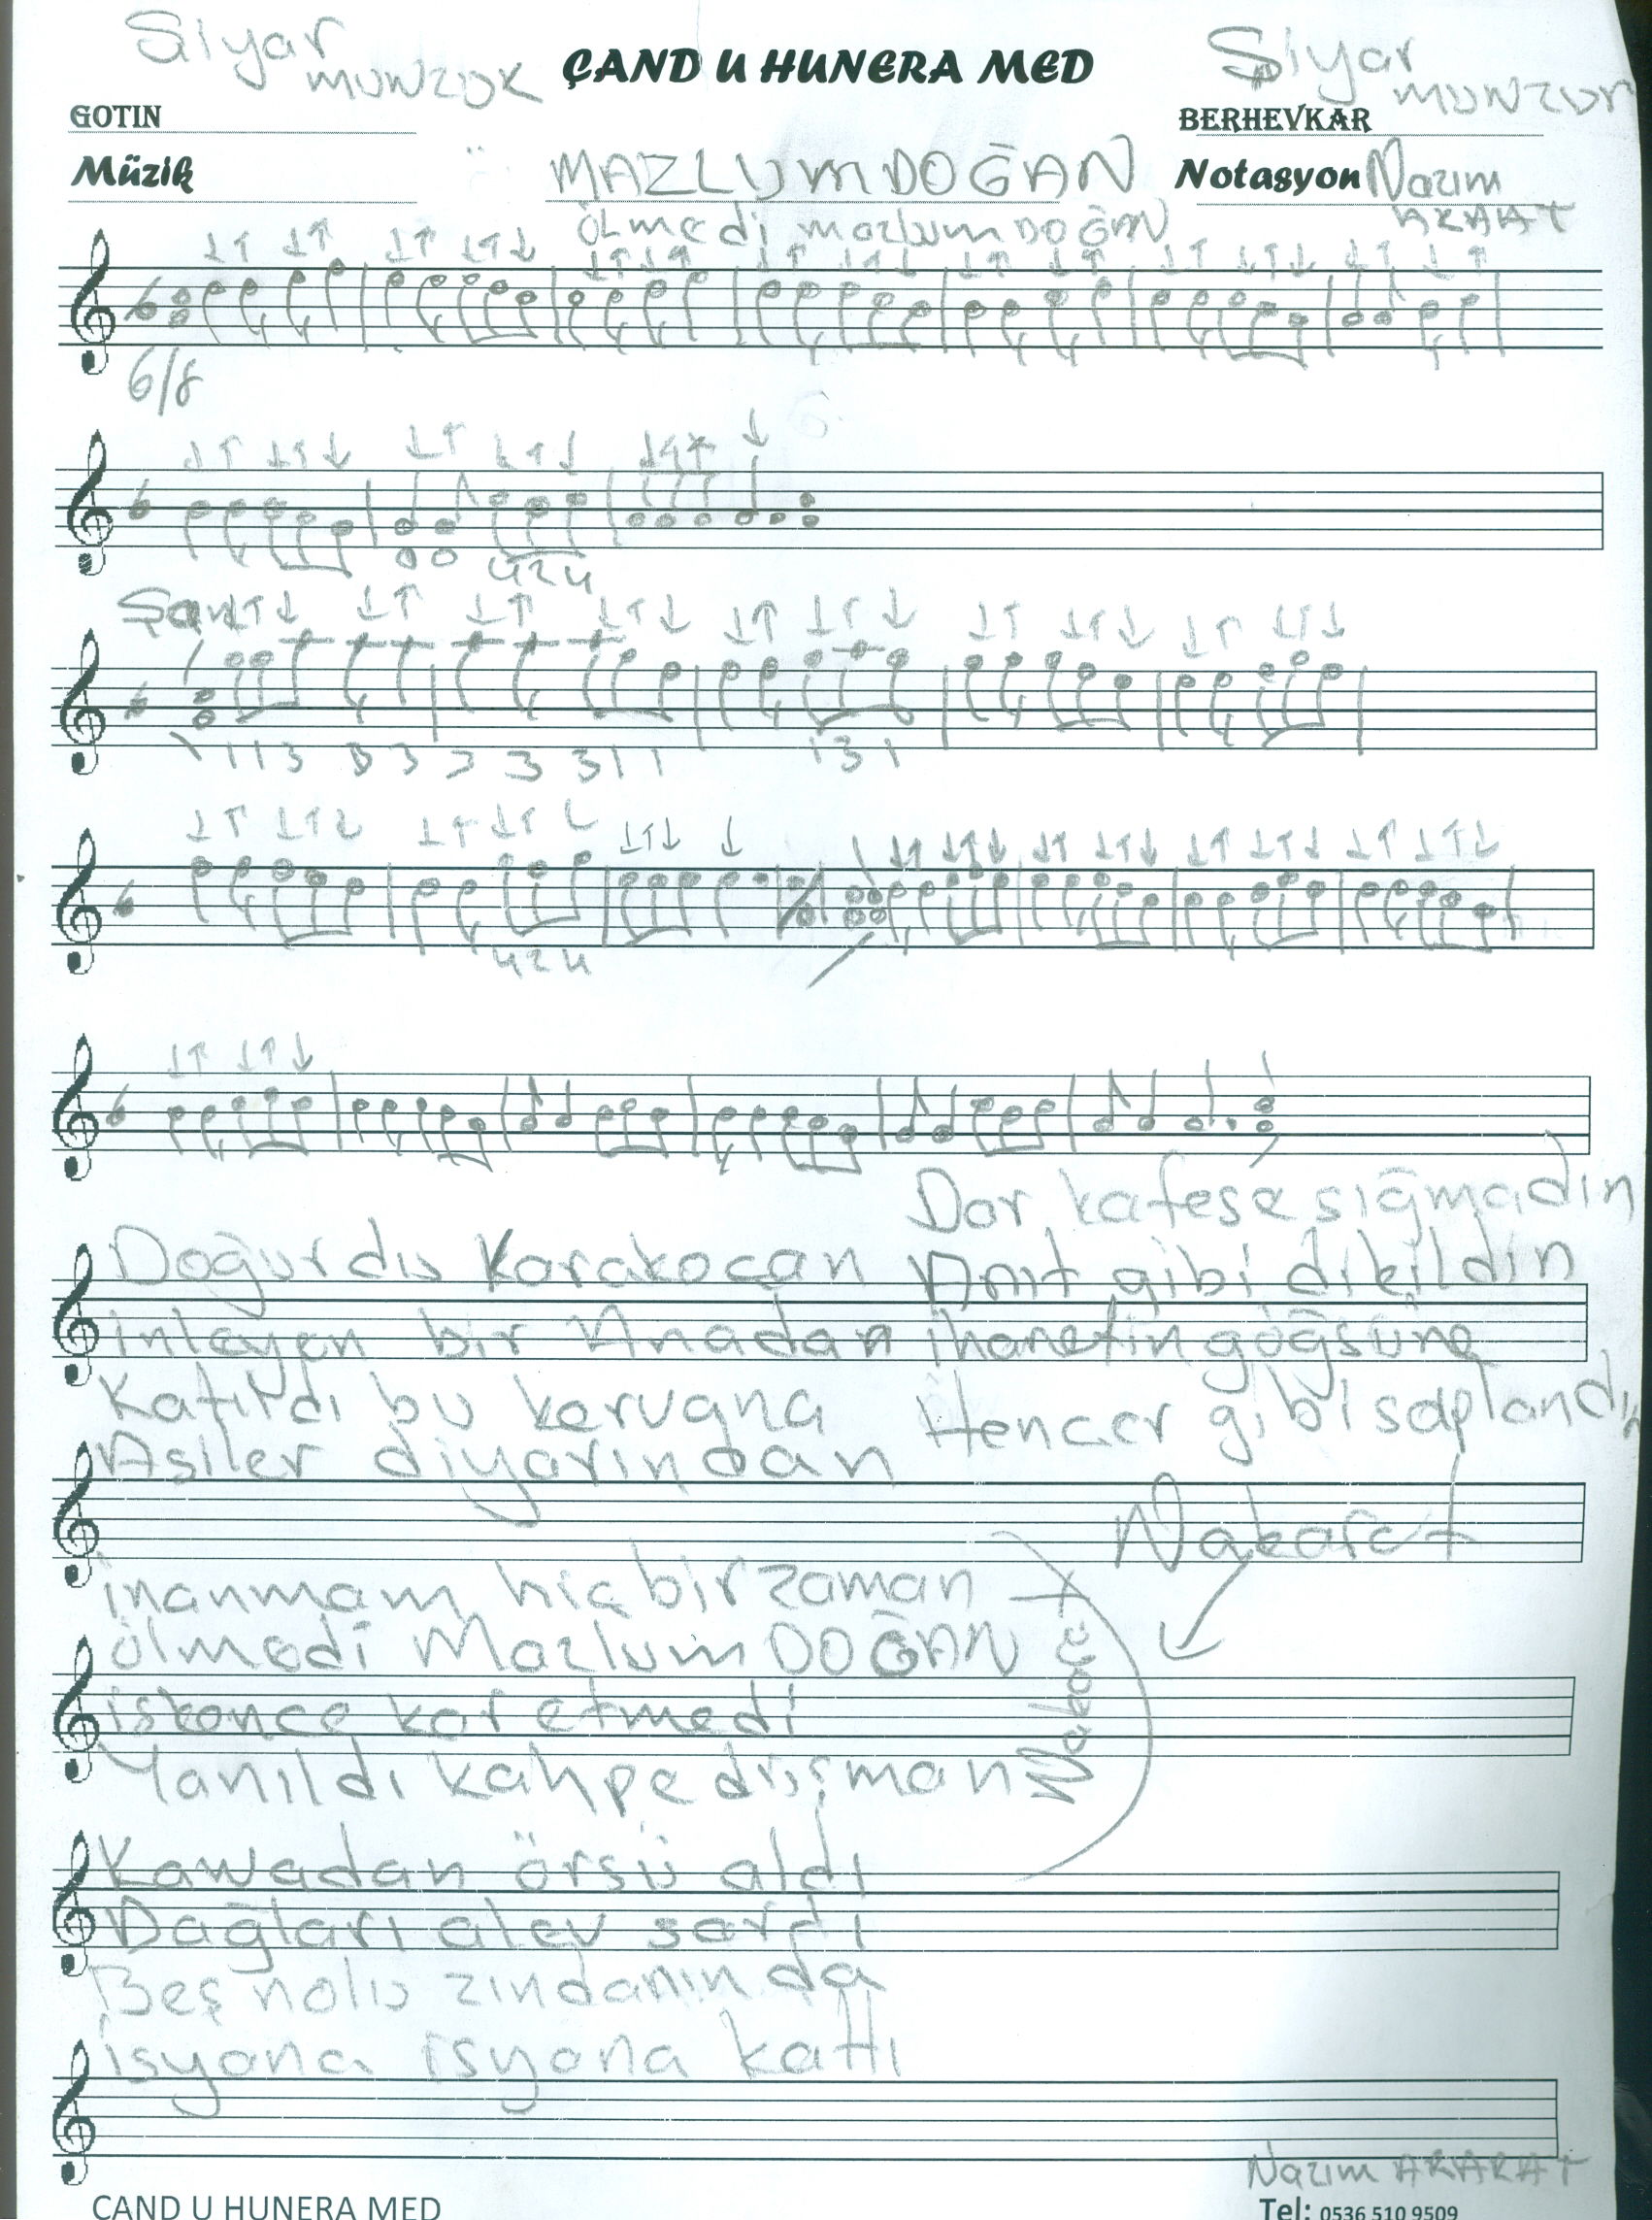 Siyar
MUNZUR
ÇAND U HUNERA MED
Şiyar
MUNZUR
GOTIN
BERHEVKAR
Müzik
MAZLUM DOĞAN
Notasyon Nazım
ARARAT
ölmedi mazlum DOĞAN
6/8
424
Şan
113 33 3 3 311 131
424
Dar kafese sığmadın
Doğurdu Karakoçan Anıt gibi dikildin
inleyen bir Anadan ihanetin göğsüne
Katıldı bu kervana Hencer gibi saplandın
Asiler diyarından
Nakarat
inanmam hiç bir zaman
ölmedi Mazlum DOĞAN
işkence kar etmedi
Yanıldı kahpe düşman
Nakarat
Kawadan örsü aldı
Dağları alev sardı
Beş nolu zındanında
isyana isyana kattı
Nazım ARARAT
CAND U HUNERA MED
Tel: 0536 510 9509